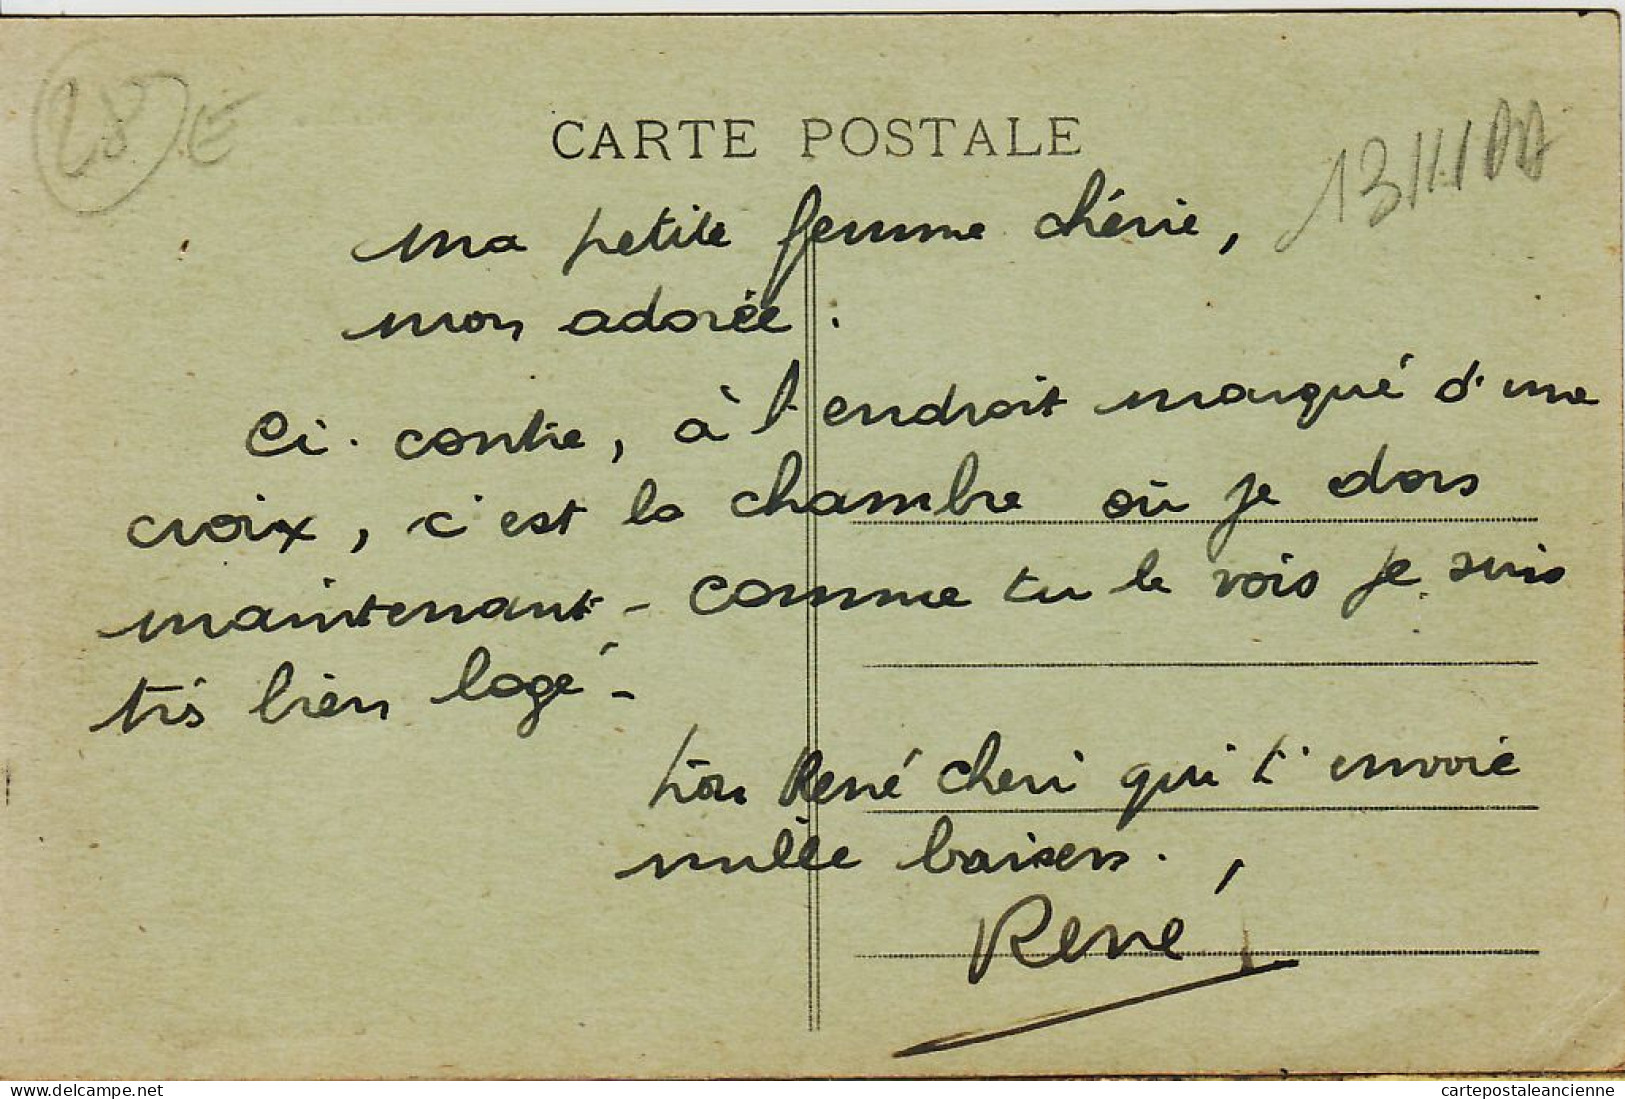 28 E
CARTE POSTALE
ma petite femme chérie,
mon adorée :
Ci-contre, à l'endroit marqué d'une
croix, c'est la chambre où je dors
maintenant - comme tu le vois je suis
très bien logé -
ton René cheri qui t'envoie
mille baisers.
René
delcampe.net
cartepostaleancienne